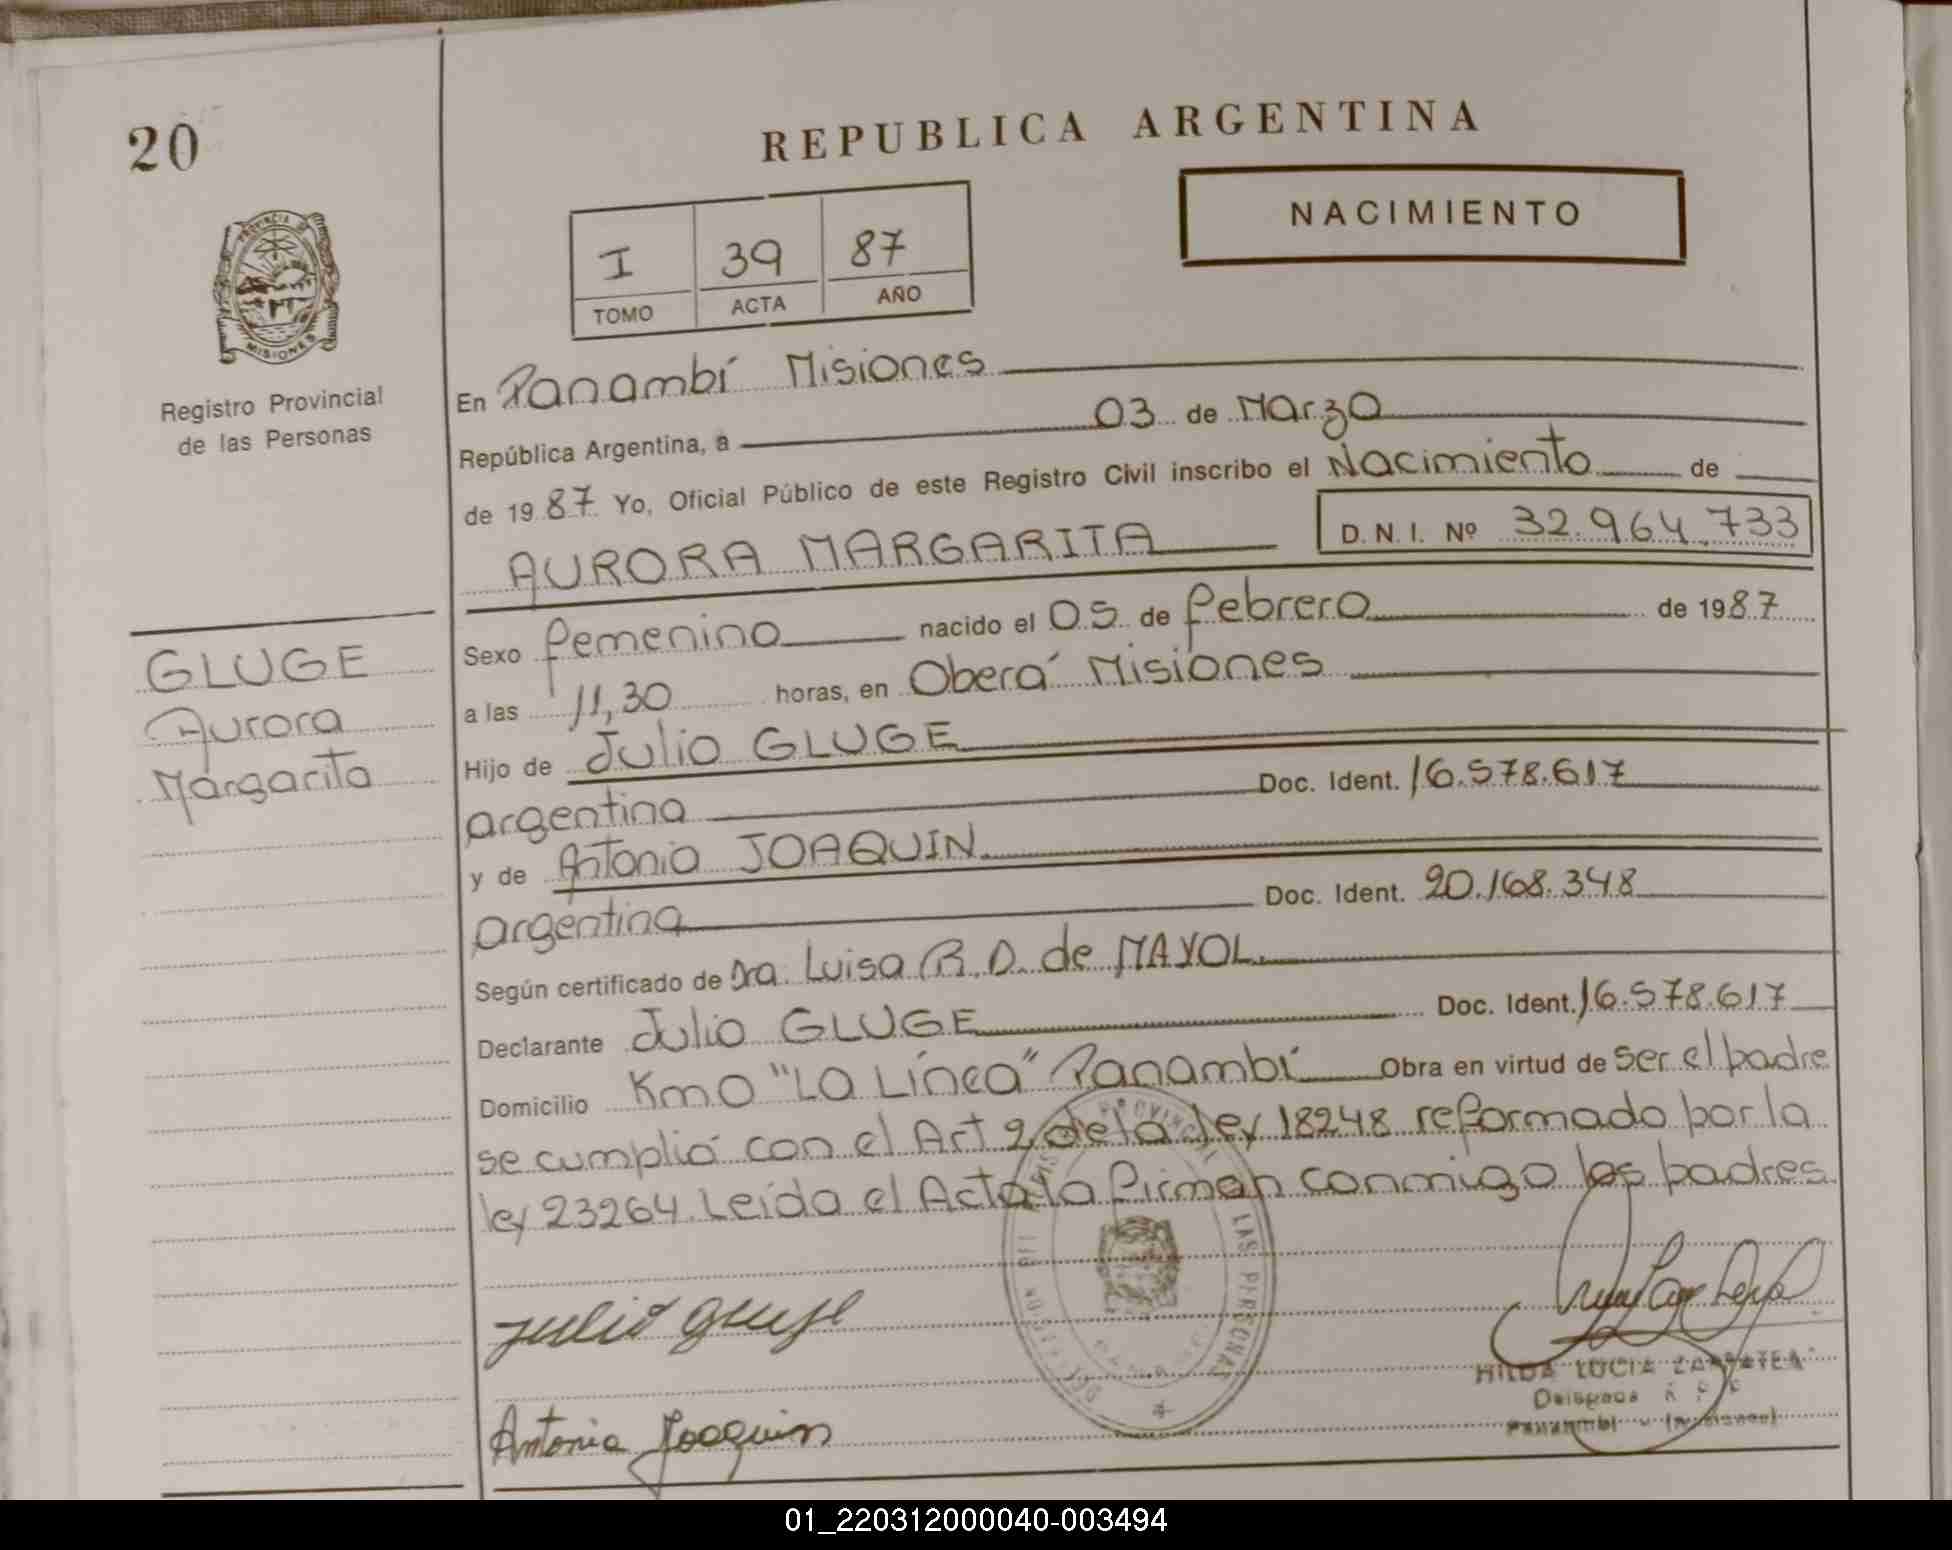 20
REPUBLICA ARGENTINA
NACIMIENTO
I 39 87
TOMO ACTA AÑO
PROVINCIA DE
MISIONES
Registro Provincial
de las Personas
En Panambí Misiones
República Argentina, a 03 de Marzo
de 1987 Yo, Oficial Público de este Registro Civil inscribo el Nacimiento de
AURORA MARGARITA D.N.I. Nº 32.964.733
GLUGE
Aurora
Margarita
Sexo femenino nacido el 05 de febrero de 1987
a las 11,30 horas, en Oberá Misiones
Hijo de Julio GLUGE
argentino Doc. Ident. 16.578.617
y de Antonia JOAQUIN
argentina Doc. Ident. 20.168.348
Según certificado de Dra. Luisa R. D. de MAYOL
Declarante Julio GLUGE Doc. Ident. 16.578.617
Domicilio Km0 "La Línea" Panambí Obra en virtud de ser el padre
se cumplió con el Art 2 de la ley 18248 reformado por la
ley 23264. Leída el Acta la firman conmigo los padres
Julio Gluge
Antonia Joaquin
HILDA LUCIA
Delegada
Panambí - (Misiones)
LAS PERSONAS
01_220312000040-003494